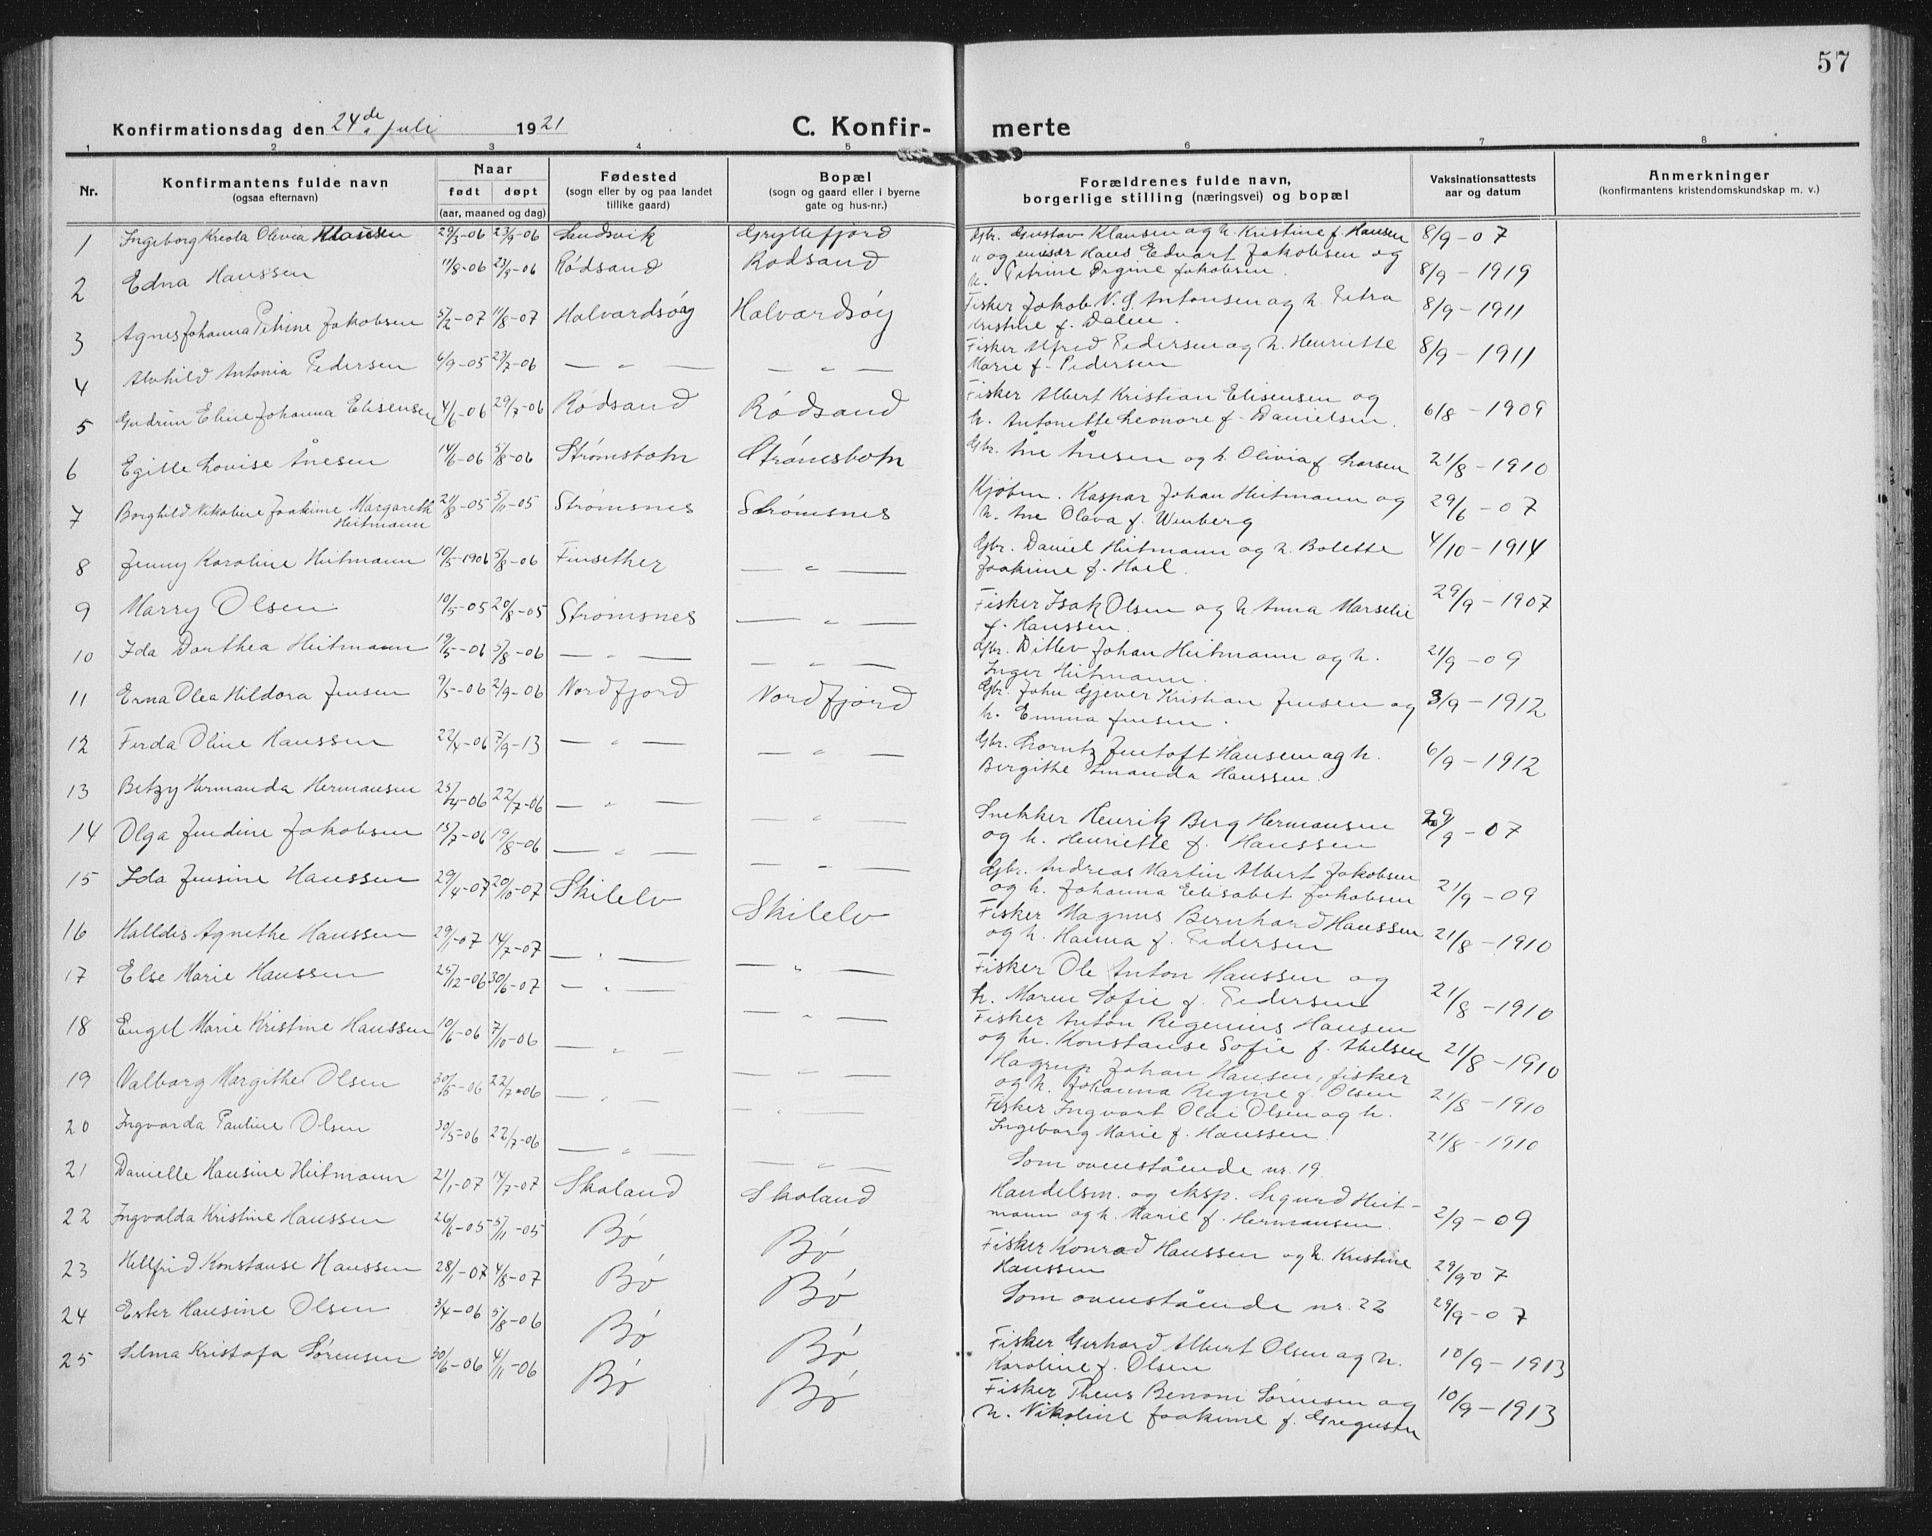 57
Konfirmationsdag den 24de juli 1921 C. Konfir- merte
1 2 3 4 5 6 7 8
Nr. Konfirmantens fulde navn (ogsaa efternavn) Naar født døpt (aar, maaned og dag) Fødested (sogn eller by og paa landet tillike gaard) Bopæl (sogn og gaard eller i byerne gate og hus-nr.) Forældrenes fulde navn, borgerlige stilling (næringsvei) og bopæl Vaksinationsattests aar og datum Anmerkninger (konfirmantens kristendomskundskap m. v.)
1 Ingeborg Olivia Klausen 29/3-06 23/9-06 Sandsvik Gryllefjord Gbr. Gustav Klausen og h. Kristine f. Hansen 8/9-07
2 Edna Hanssen 11/8-06 23/9-06 Rødsand Rødsand " og Hans Edvart Jakobsen og
h. Petrine Jakobsen. 8/9-1919
3 Agnes Johanna Petrine Jakobsen 5/2-07 11/8-07 Halvardsøy Halvardsøy Fisker Jakob N. S. Antonsen og h. Petra
Kristine f. Dalen. 8/9-1911
4 Alvhild Antonia Pedersen 4/9-05 23/7-06 — " — — " — Fisker Alfred Pedersen og h. Henriette
Marie f. Pedersen 8/9-1911
5 Gudrun Eline Johanna Elisensen 4/6-06 29/7-06 Rødsand Rødsand Fisker Albert Kristian Elisensen og
h. Antonette Leonore f. Danielsen. 6/8-1909
6 Egille Lovise Ånesen 14/6-06 5/8-06 Strømsbotn Strømsbotn Gbr. Åne Ånesen og h. Olivia f. Larsen 21/8-1910
7 Borghild Nikoline Joakime Margareth
Heitmann 21/8-05 5/11-05 Strømsnes Strømsnes Kjøbm. Kaspar Johan Heitmann og
h. Ane Olava f. Wenberg 29/6-07
8 Jenny Karoline Heitmann 10/5-1906 5/8-06 Finsether — " — Gbr. Daniel Heitmann og h. Bolette
Joakime f. Hoel. 4/10-1914
9 Marry Olsen 10/5-05 20/8-05 Strømsnes — " — Fisker Isak Olsen og h. Anna Marselie
f. Hanssen. 29/9-1907
10 Ida Dorthea Heitmann 19/5-06 5/8-06 — " — — " — Gbr. Ditlev Johan Heitmann og h.
Inger Heitmann. 21/9-09
11 Erna Olea Hildora Jensen 9/5-06 2/9-06 Nordfjord Nordfjord Gbr. John Gjever Kristian Jensen og
h. Emma Jensen. 3/9-1912
12 Ferda Oline Hanssen 22/4-06 7/9-13 — " — — " — Gbr. Lorntz Jentoft Hansen og h.
Bergithe Amanda Hanssen. 6/9-1912
13 Betzy Hermanda Hermansen 25/4-06 22/7-06 — " — — " — Snekker Henrik Berg Hermansen
og h. Henriette f. Hanssen 29/9-07
14 Olga Jendine Jakobsen 15/7-06 19/8-06 — " — — " — Gbr. Andreas Martin Albert Jakobsen
og h. Johanna Elisabet Jakobsen 21/9-09
15 Ida Jensine Hanssen 29/4-07 20/10-07 Skilelv Skilelv Fisker Magnus Bernhard Hanssen
og h. Hanna f. Pedersen 21/8-1910
16 Halldis Agnethe Hanssen 29/1-07 14/7-07 — " — — " — Fisker Ole Anton Hanssen og
h. Maren Sofie f. Pedersen 21/8-1910
17 Else Marie Hanssen 25/12-06 30/6-07 — " — — " — Fisker Anton Regenius Hansen
og h. Konstanse Sofie f. Abelsen 21/8-1910
18 Engel Marie Kristine Hanssen 10/6-06 7/10-06 — " — — " — Hagrup Johan Hansen, fisker
og h. Johanna Regine f. Olsen 21/8-1910
19 Valborg Margithe Olsen 30/5-06 22/7-06 — " — — " — Fisker Ingvart Olai Olsen og h.
Ingeborg Marie f. Hanssen. 21/8-1910
20 Ingvarda Pauline Olsen 30/5-06 22/7-06 — " — — " — Som ovenstående nr. 19.
21 Danielle Hansine Heitmann 21/1-07 14/7-07 Skaland Skaland Handelsm. og eksp. Sigurd Heit-
mann og h. Marie f. Hermansen. 2/9-09
22 Ingvalda Kristine Hanssen 26/6-05 5/11-05 Bø Bø Fisker Konrad Hanssen og h. Kristine
Hanssen 29/9-07
23 Hellfrid Konstanse Hanssen 28/1-07 4/8-07 Bø Bø Som ovenstående nr. 22 29/9-07
24 Ester Hansine Olsen 3/4-06 5/8-06 Bø Bø Fisker Gerhard Albert Olsen og h.
Karoline f. Olsen 10/9-1913
25 Selma Kristofa Sørensen 30/6-06 4/11-06 Bø Bø Fisker Theus Benoni Sørensen og
h. Nikoline Joakime f. Gregusen 10/9-1913